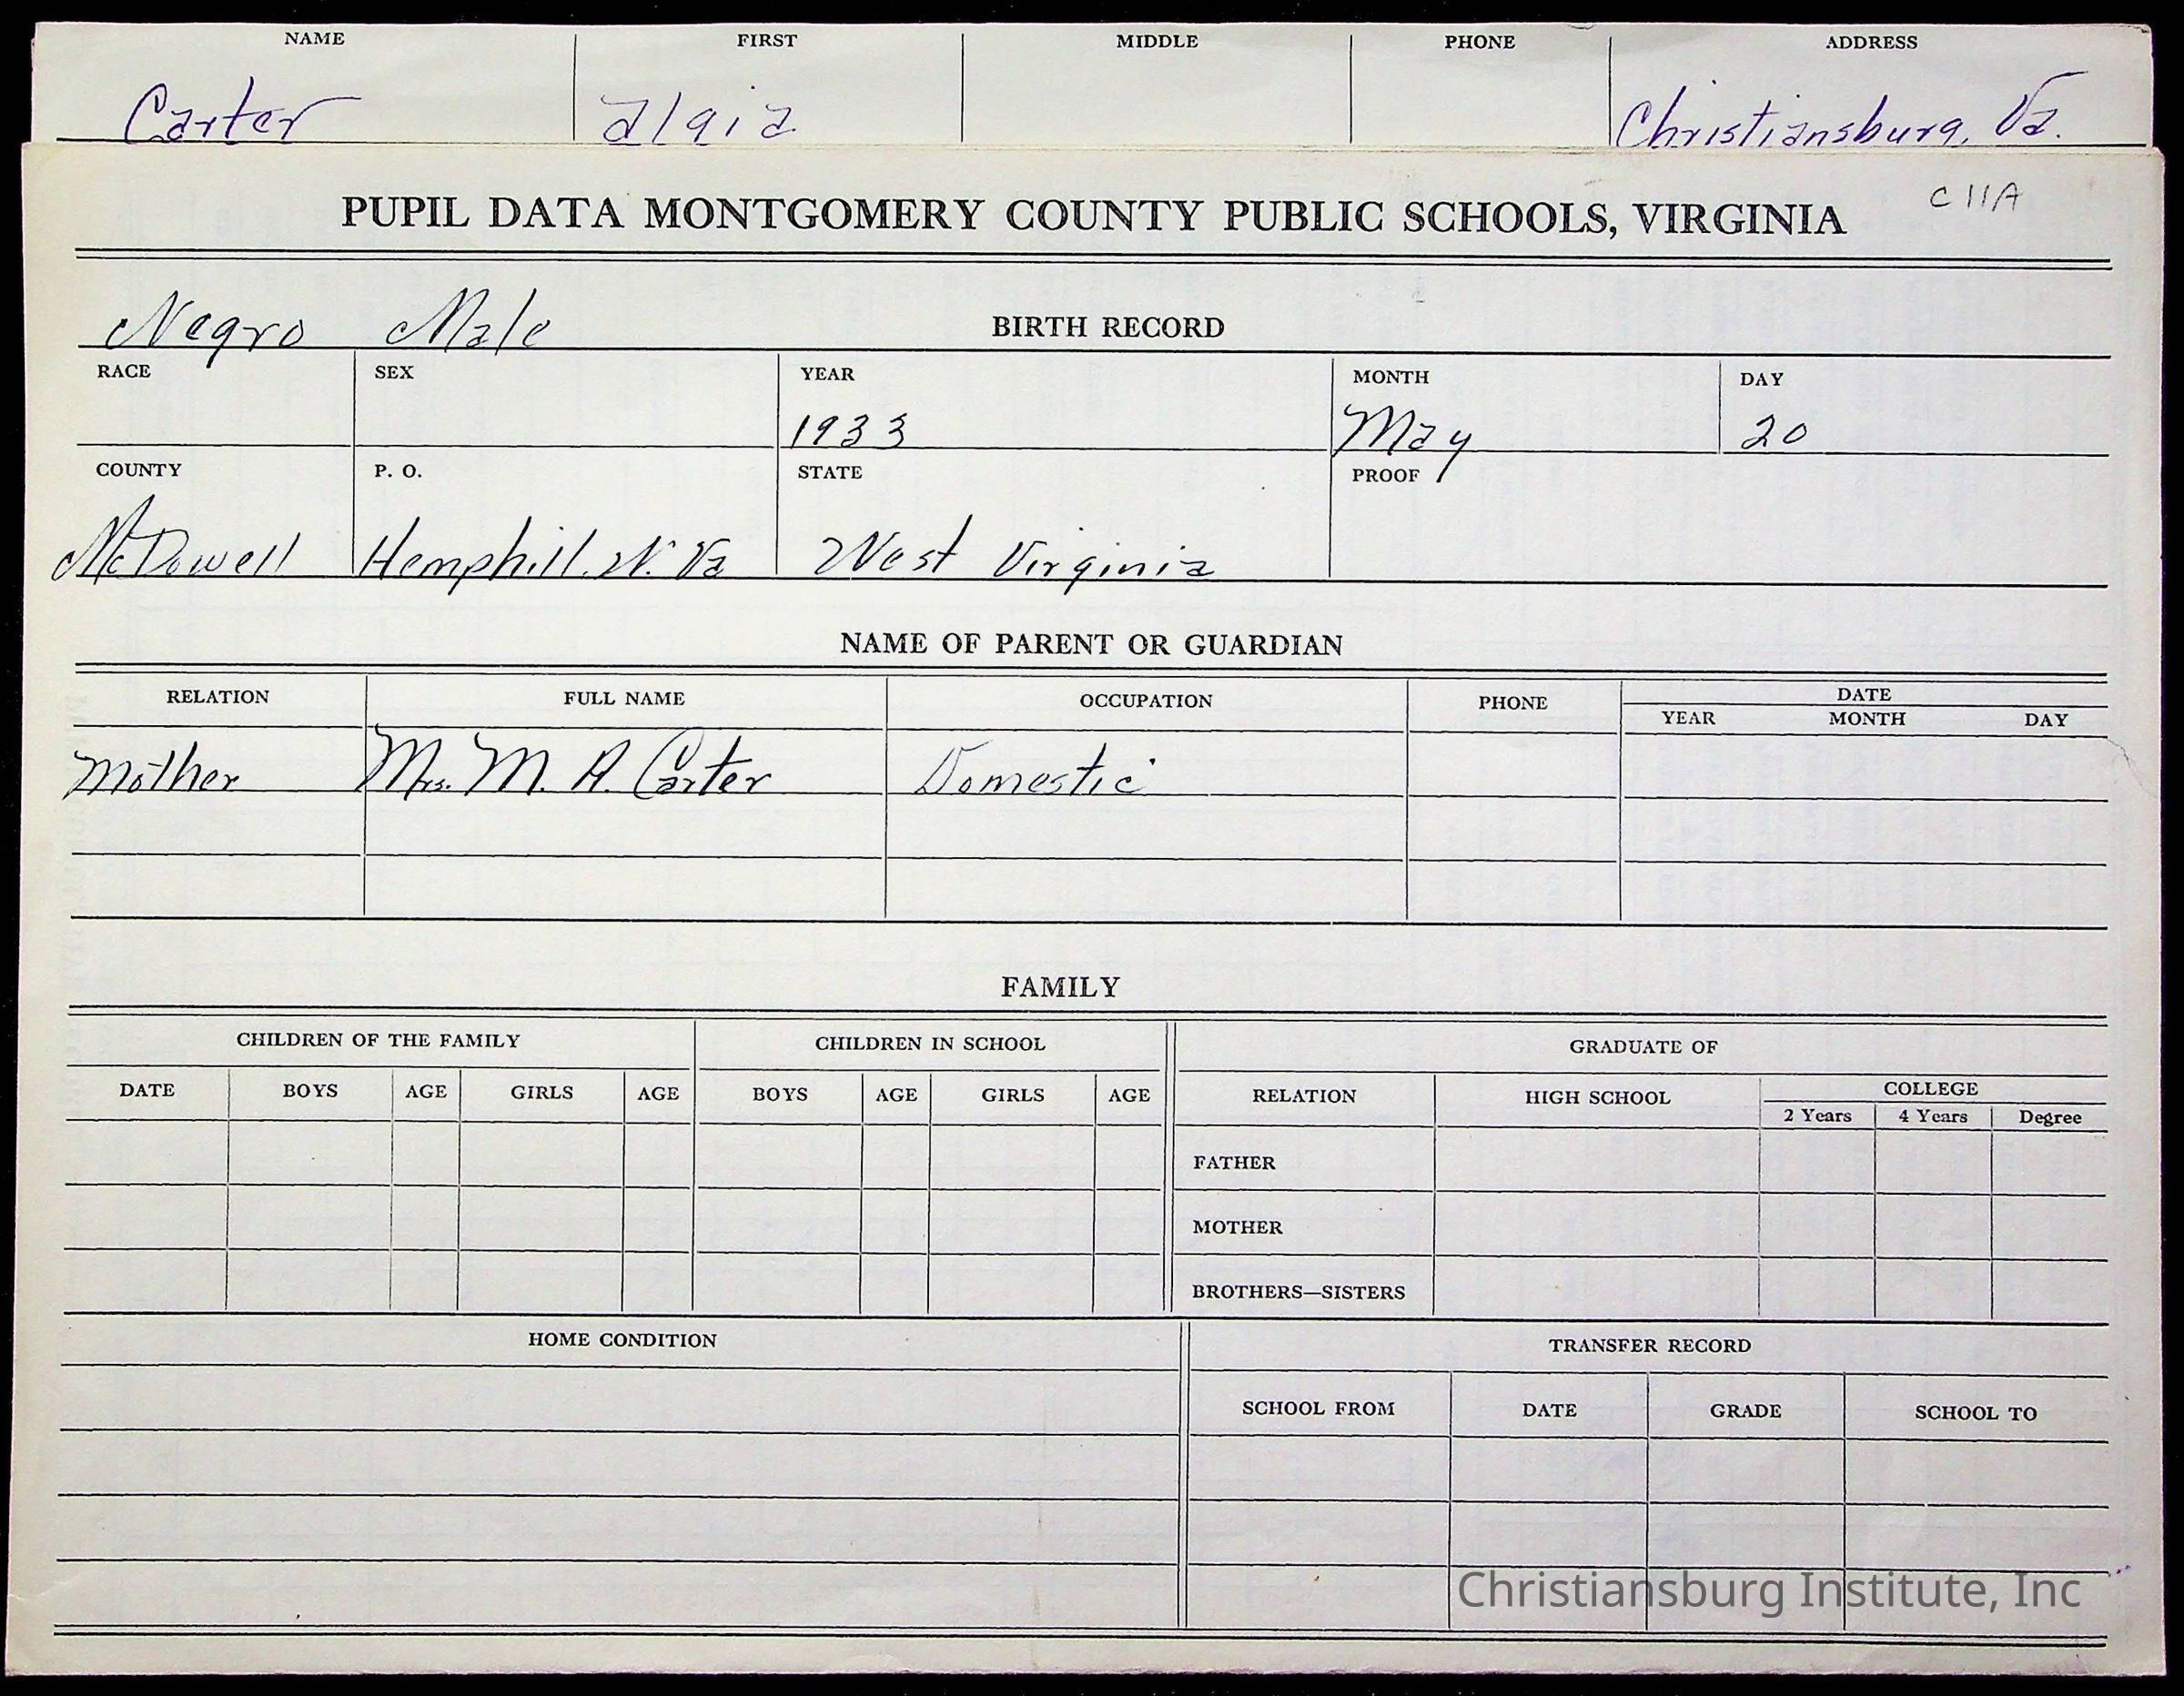 NAME FIRST MIDDLE PHONE ADDRESS
Carter algia Christiansburg, Va.
C 11A
PUPIL DATA MONTGOMERY COUNTY PUBLIC SCHOOLS, VIRGINIA
Negro Male BIRTH RECORD
RACE SEX YEAR MONTH DAY
1933 May 20
COUNTY P. O. STATE PROOF
McDowell Hemphill, W. Va West Virginia
NAME OF PARENT OR GUARDIAN
RELATION FULL NAME OCCUPATION PHONE DATE
YEAR MONTH DAY
Mother Mrs. M. A. Carter Domestic
FAMILY
CHILDREN OF THE FAMILY CHILDREN IN SCHOOL GRADUATE OF
DATE BOYS AGE GIRLS AGE BOYS AGE GIRLS AGE RELATION HIGH SCHOOL COLLEGE
2 Years 4 Years Degree
FATHER
MOTHER
BROTHERS—SISTERS
HOME CONDITION TRANSFER RECORD
SCHOOL FROM DATE GRADE SCHOOL TO
Christiansburg Institute, Inc